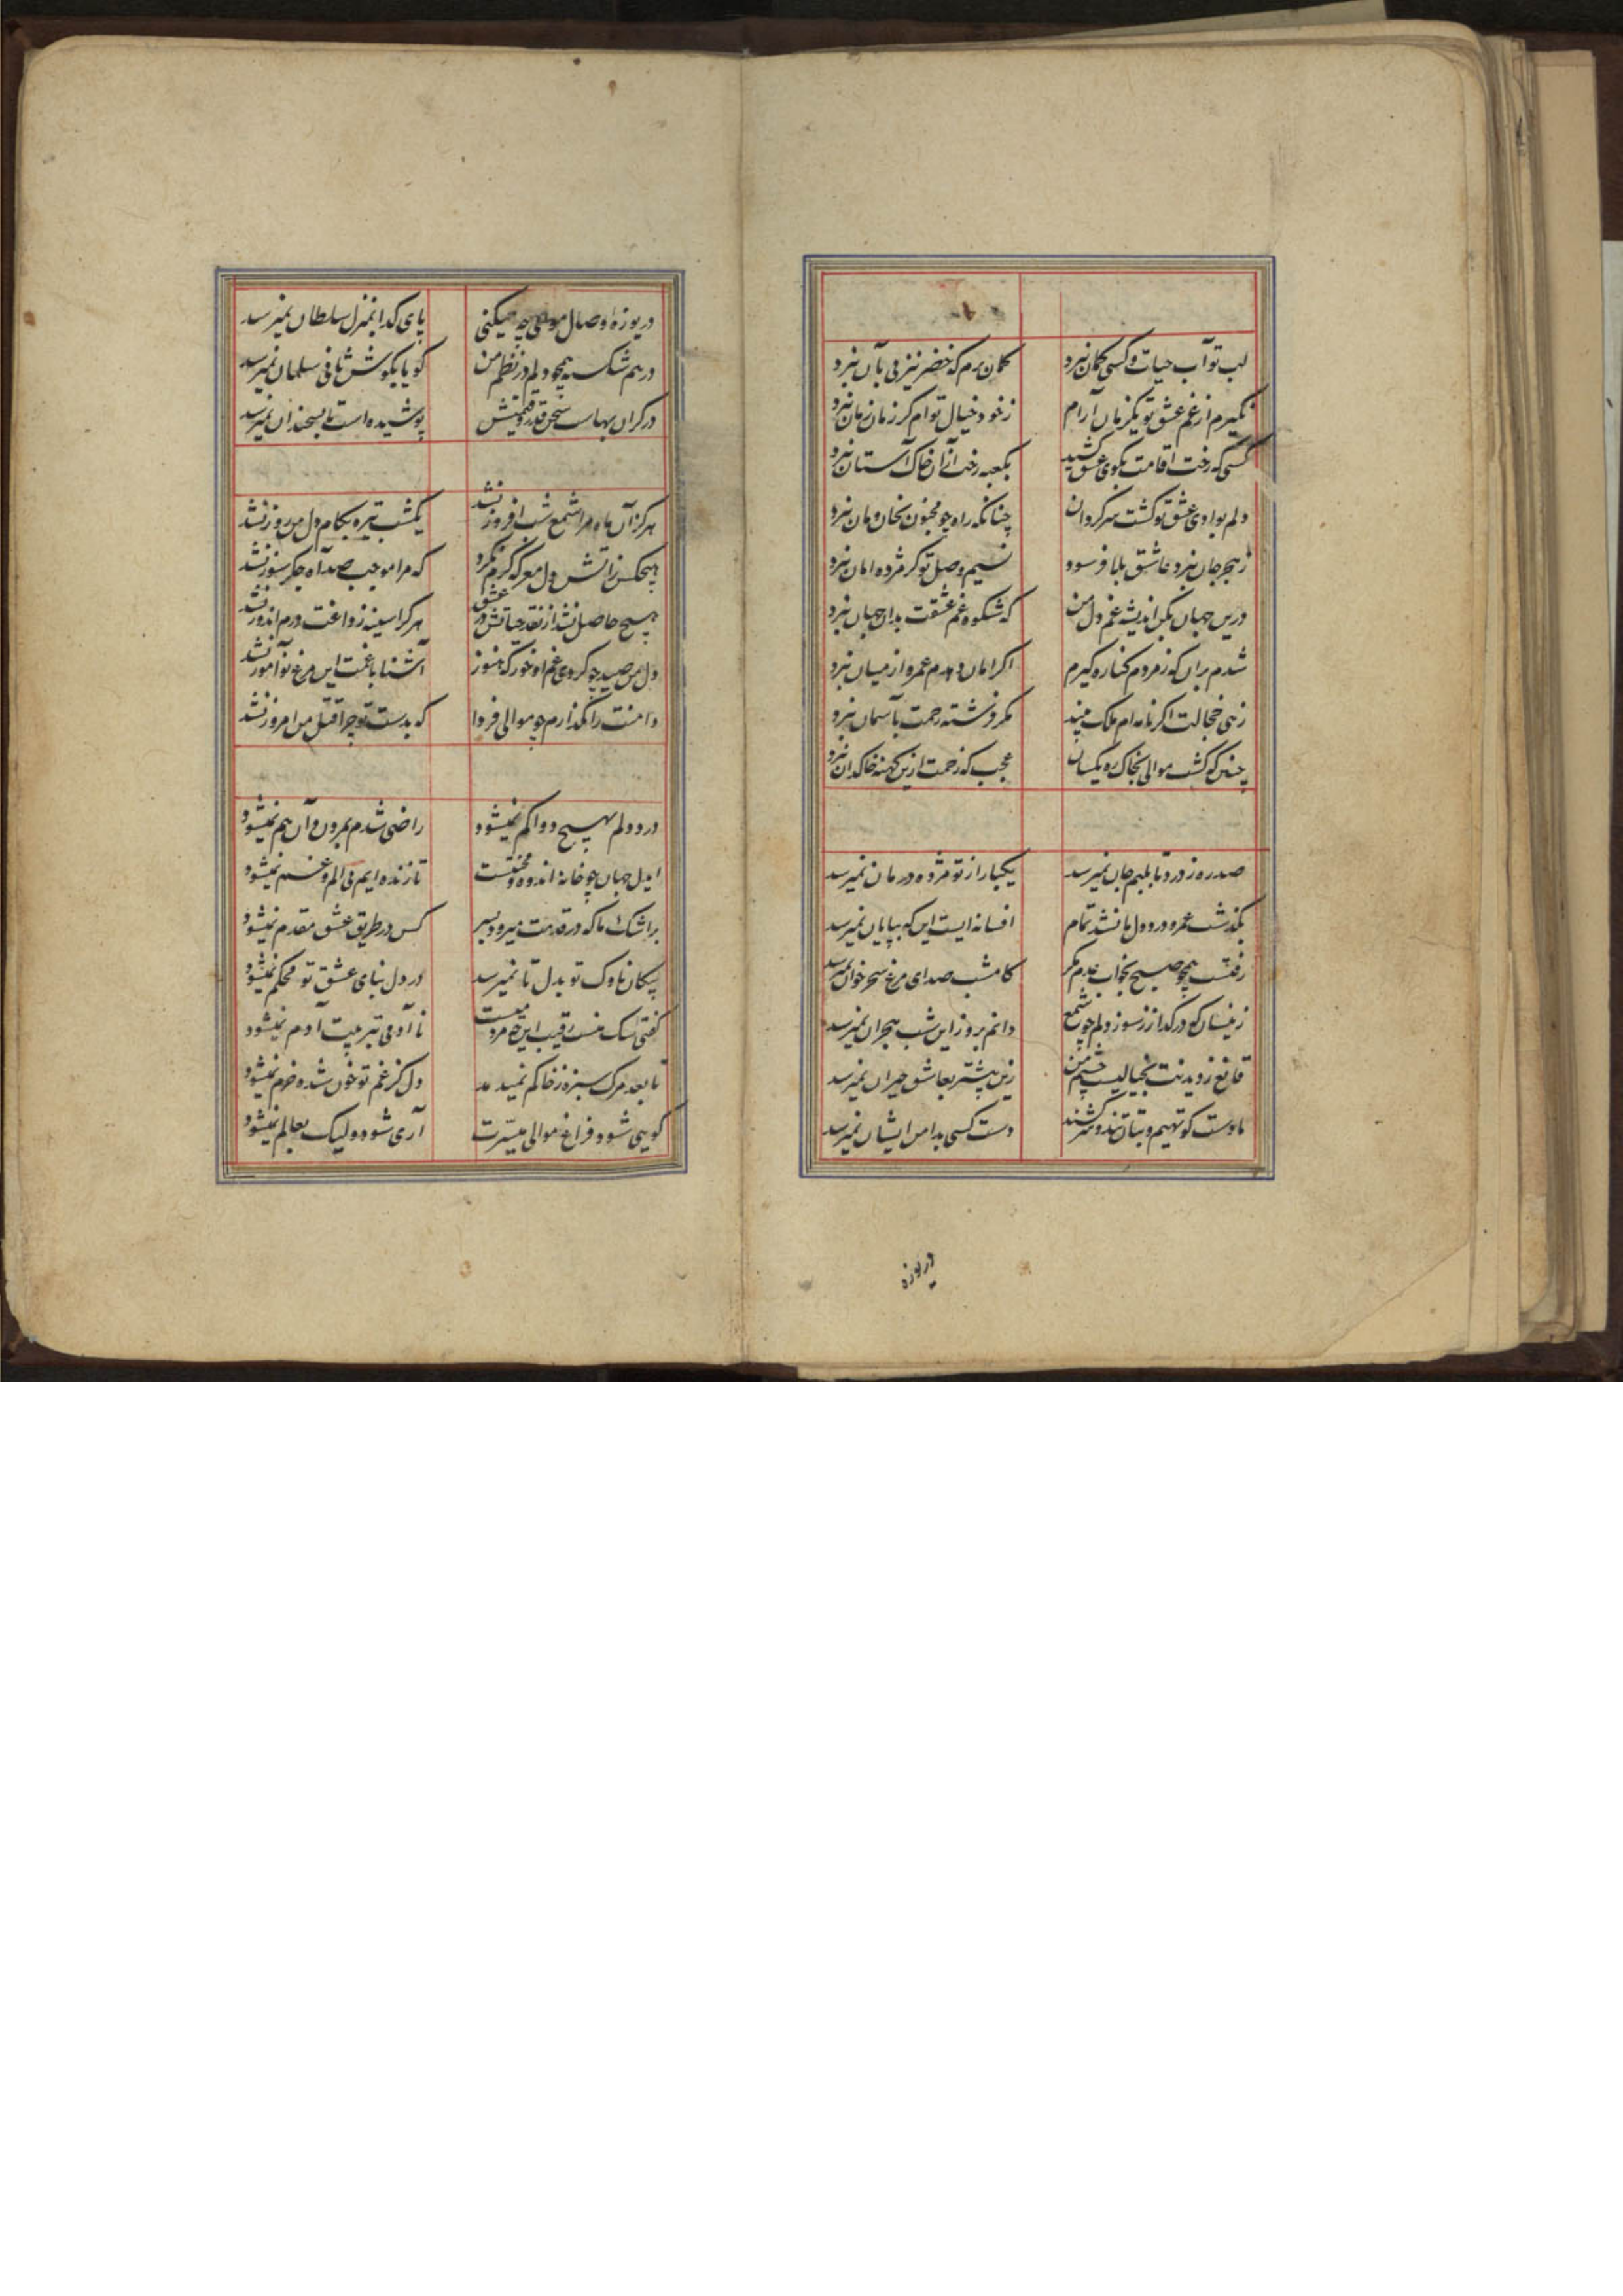 لب تو آب حیات و کسی کمان نبرد
کمان برم که خضر نیز پی بآن نبرد
نگیرم از غم عشق تو یکزمان آرام
ز خود خیال توام کر زمان زمان نبرد
کسی که رخت اقامت بکوی عشق کشید
بکعبه رخت از آن خاک آستان نبرد
دلم بوادی عشق تو کشت سرکردان
چنانکه راه چو مجنون بخان و مان نبرد
ز هجر جان نبرد عاشق بلا فرسود
نسیم وصل تو کر مژده امان نبرد
درین جهان بکن اندیشه غم دل من
که شکوه غم عشقت بدان جهان نبرد
شدم بران که ز مردم کناره گیرم
اکر امان دهدم عمر و از میان نبرد
زهی خجالت اکر نامه ام ملک بیند
مکر فرشته رحمت بآسمان نبرد
چنین که کشت موالی بخاک ره یکسان
عجب که زحمت ازین کهنه خاکدان نبرد
صد ره ز درد تا بلبم جان نمیرسد
یکبار از تو مژده درمان نمیرسد
بگذشت عمر و درد دل ما نشد تمام
افسانه ایست این که بپایان نمیرسد
رفتست همچو صبح بخواب عدم مکر
کامشب صدای مرغ سحر خوان نمیرسد
زینسان که در کداز ز سوز دلم چو شمع
دانم بروز این شب هجران نمیرسد
قانع ز دیدنت بخیالیست چشم من
زین بیشتر بعاشق حیران نمیرسد
ما دست کوتهیم و بتان تند و سرکشند
دست کسی بدامن ایشان نمیرسد
دریوزه
دریوزه وصال موالی چه میکنی
پای کدا بمنزل سلطان نمیرسد
درهم شکسته همچو دلم در نظم من
کویا بکوش ثانی سلمان نمیرسد
در کران بهاست سخن قدر و قیمتش
پوشیده است تا بسخندان نمیرسد
هرکز آن ماه مرا شمع شب افروز نشد
یکشب تیره بکام دل من روز نشد
هیچکس ز آتش دل معرکه گرم نکرد
که مرا موجب صد آه جگرسوز نشد
هیچ حاصل نشد از نقد حیاتش در عشق
هر کرا سینه ز داغت درم اندوز نشد
دل من صید چه کردی غم او خور که هنوز
آشنا با غمت این مرغ نوآموز نشد
دامنت را نگذارم چو موالی فردا
که بدست تو چرا قتل من امروز نشد
درد دلم بهیچ دوا کم نمیشود
راضی شدم بمردن و آن هم نمیشود
ایدل جهان چو خانه اندوه و محنتست
تا زنده ایم بی الم و غم نمیشود
بر اشک ما که در قدمت میرود بسر
کس در طریق عشق مقدم نمیشود
پیکان ناوک تو بدل تا نمیرسد
در دل بنای عشق تو محکم نمیشود
کفتی سک منست رقیب این چه مردمیست
ناآدمی بتربیت آدم نمیشود
تا بعد مرک سبزه ز خاکم نمیدمد
دل کز غم تو خون شده خرم نمیشود
کویی شود فراغ موالی میسرت
آری شود ولیک بعالم نمیشود